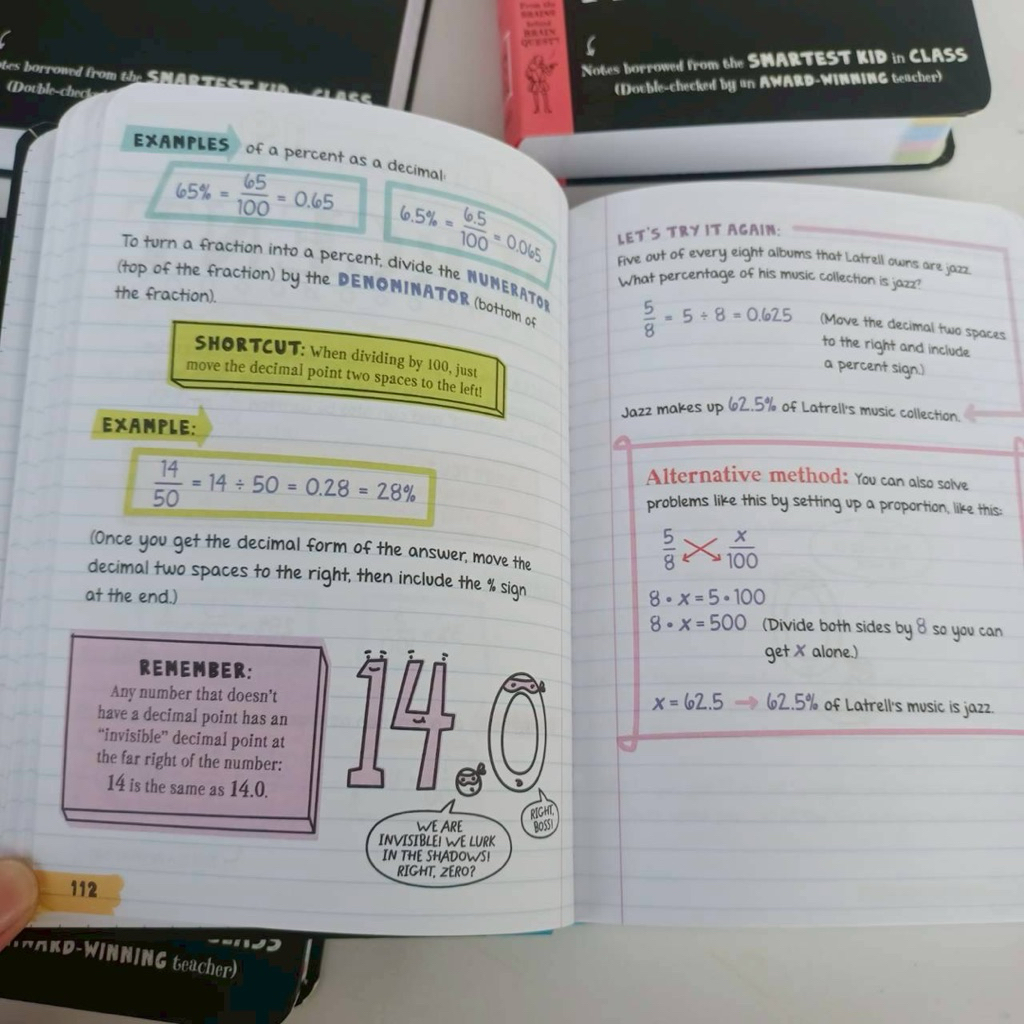 tes borrowed from the SMARTEST KID in CLASS
From the
BRAINS
behind
BRAIN
QUEST
Notes borrowed from the SMARTEST KID in CLASS
(Double-checked by an AWARD-WINNING teacher)
EXAMPLES of a percent as a decimal:
65% = 65/100 = 0.65
6.5% = 6.5/100 = 0.065
To turn a fraction into a percent, divide the NUMERATOR
(top of the fraction) by the DENOMINATOR (bottom of
the fraction).
SHORTCUT: When dividing by 100, just
move the decimal point two spaces to the left!
EXAMPLE:
14/50 = 14 ÷ 50 = 0.28 = 28%
(Once you get the decimal form of the answer, move the
decimal two spaces to the right, then include the % sign
at the end.)
REMEMBER:
Any number that doesn't
have a decimal point has an
"invisible" decimal point at
the far right of the number:
14 is the same as 14.0.
14.0
WE ARE
INVISIBLE! WE LURK
IN THE SHADOWS!
RIGHT, ZERO?
RIGHT,
BOSS!
112
LET'S TRY IT AGAIN:
Five out of every eight albums that Latrell owns are jazz.
What percentage of his music collection is jazz?
5/8 = 5 ÷ 8 = 0.625
(Move the decimal two spaces
to the right and include
a percent sign.)
Jazz makes up 62.5% of Latrell's music collection.
Alternative method: You can also solve
problems like this by setting up a proportion, like this:
5/8 x/100
8 • x = 5 • 100
8 • x = 500 (Divide both sides by 8 so you can
get x alone.)
x = 62.5 → 62.5% of Latrell's music is jazz.
CLASS
AWARD-WINNING teacher)